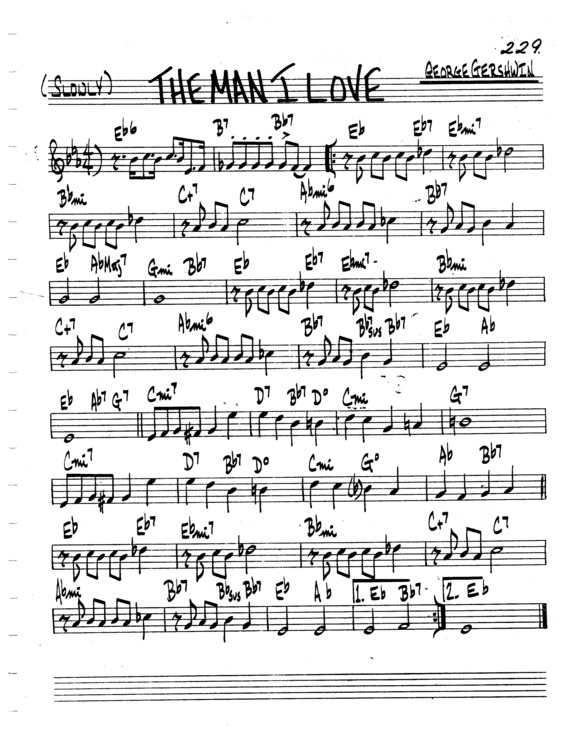 229.
(SLOWLY) THE MAN I LOVE GEORGE GERSHWIN
Eb6 B7 Bb7 Eb Eb7 Ebmi7
Bbmi C+7 C7 Abmi6 Bb7
Eb AbMaj7 Gmi Bb7 Eb Eb7 Ebmi7 Bbmi
C+7 C7 Abmi6 Bb7 Bb7sus Bb7 Eb Ab
Eb Ab7 G7 Cmi7 D7 Bb7 Do Cmi G7
Cmi7 D7 Bb7 Do Cmi Go Ab Bb7
Eb Eb7 Ebmi7 Bbmi C+7 C7
Abmi Bb7 Bbsus Bb7 Eb Ab 1. Eb Bb7 2. Eb